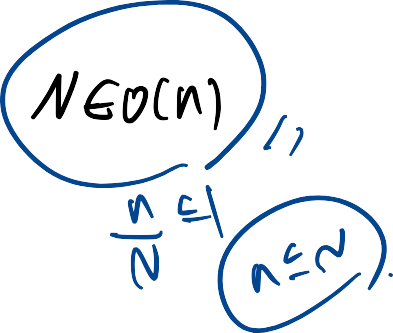 N ∈ O(n)
n/N ≤ 1
n ≤ N